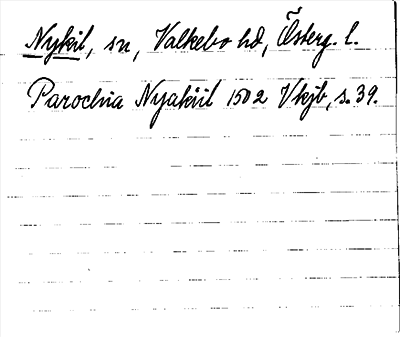 Nykil, sn, Valkebo hd, Österg. l.
Parochia Nyakiil 1502 Vkjb, s. 39.